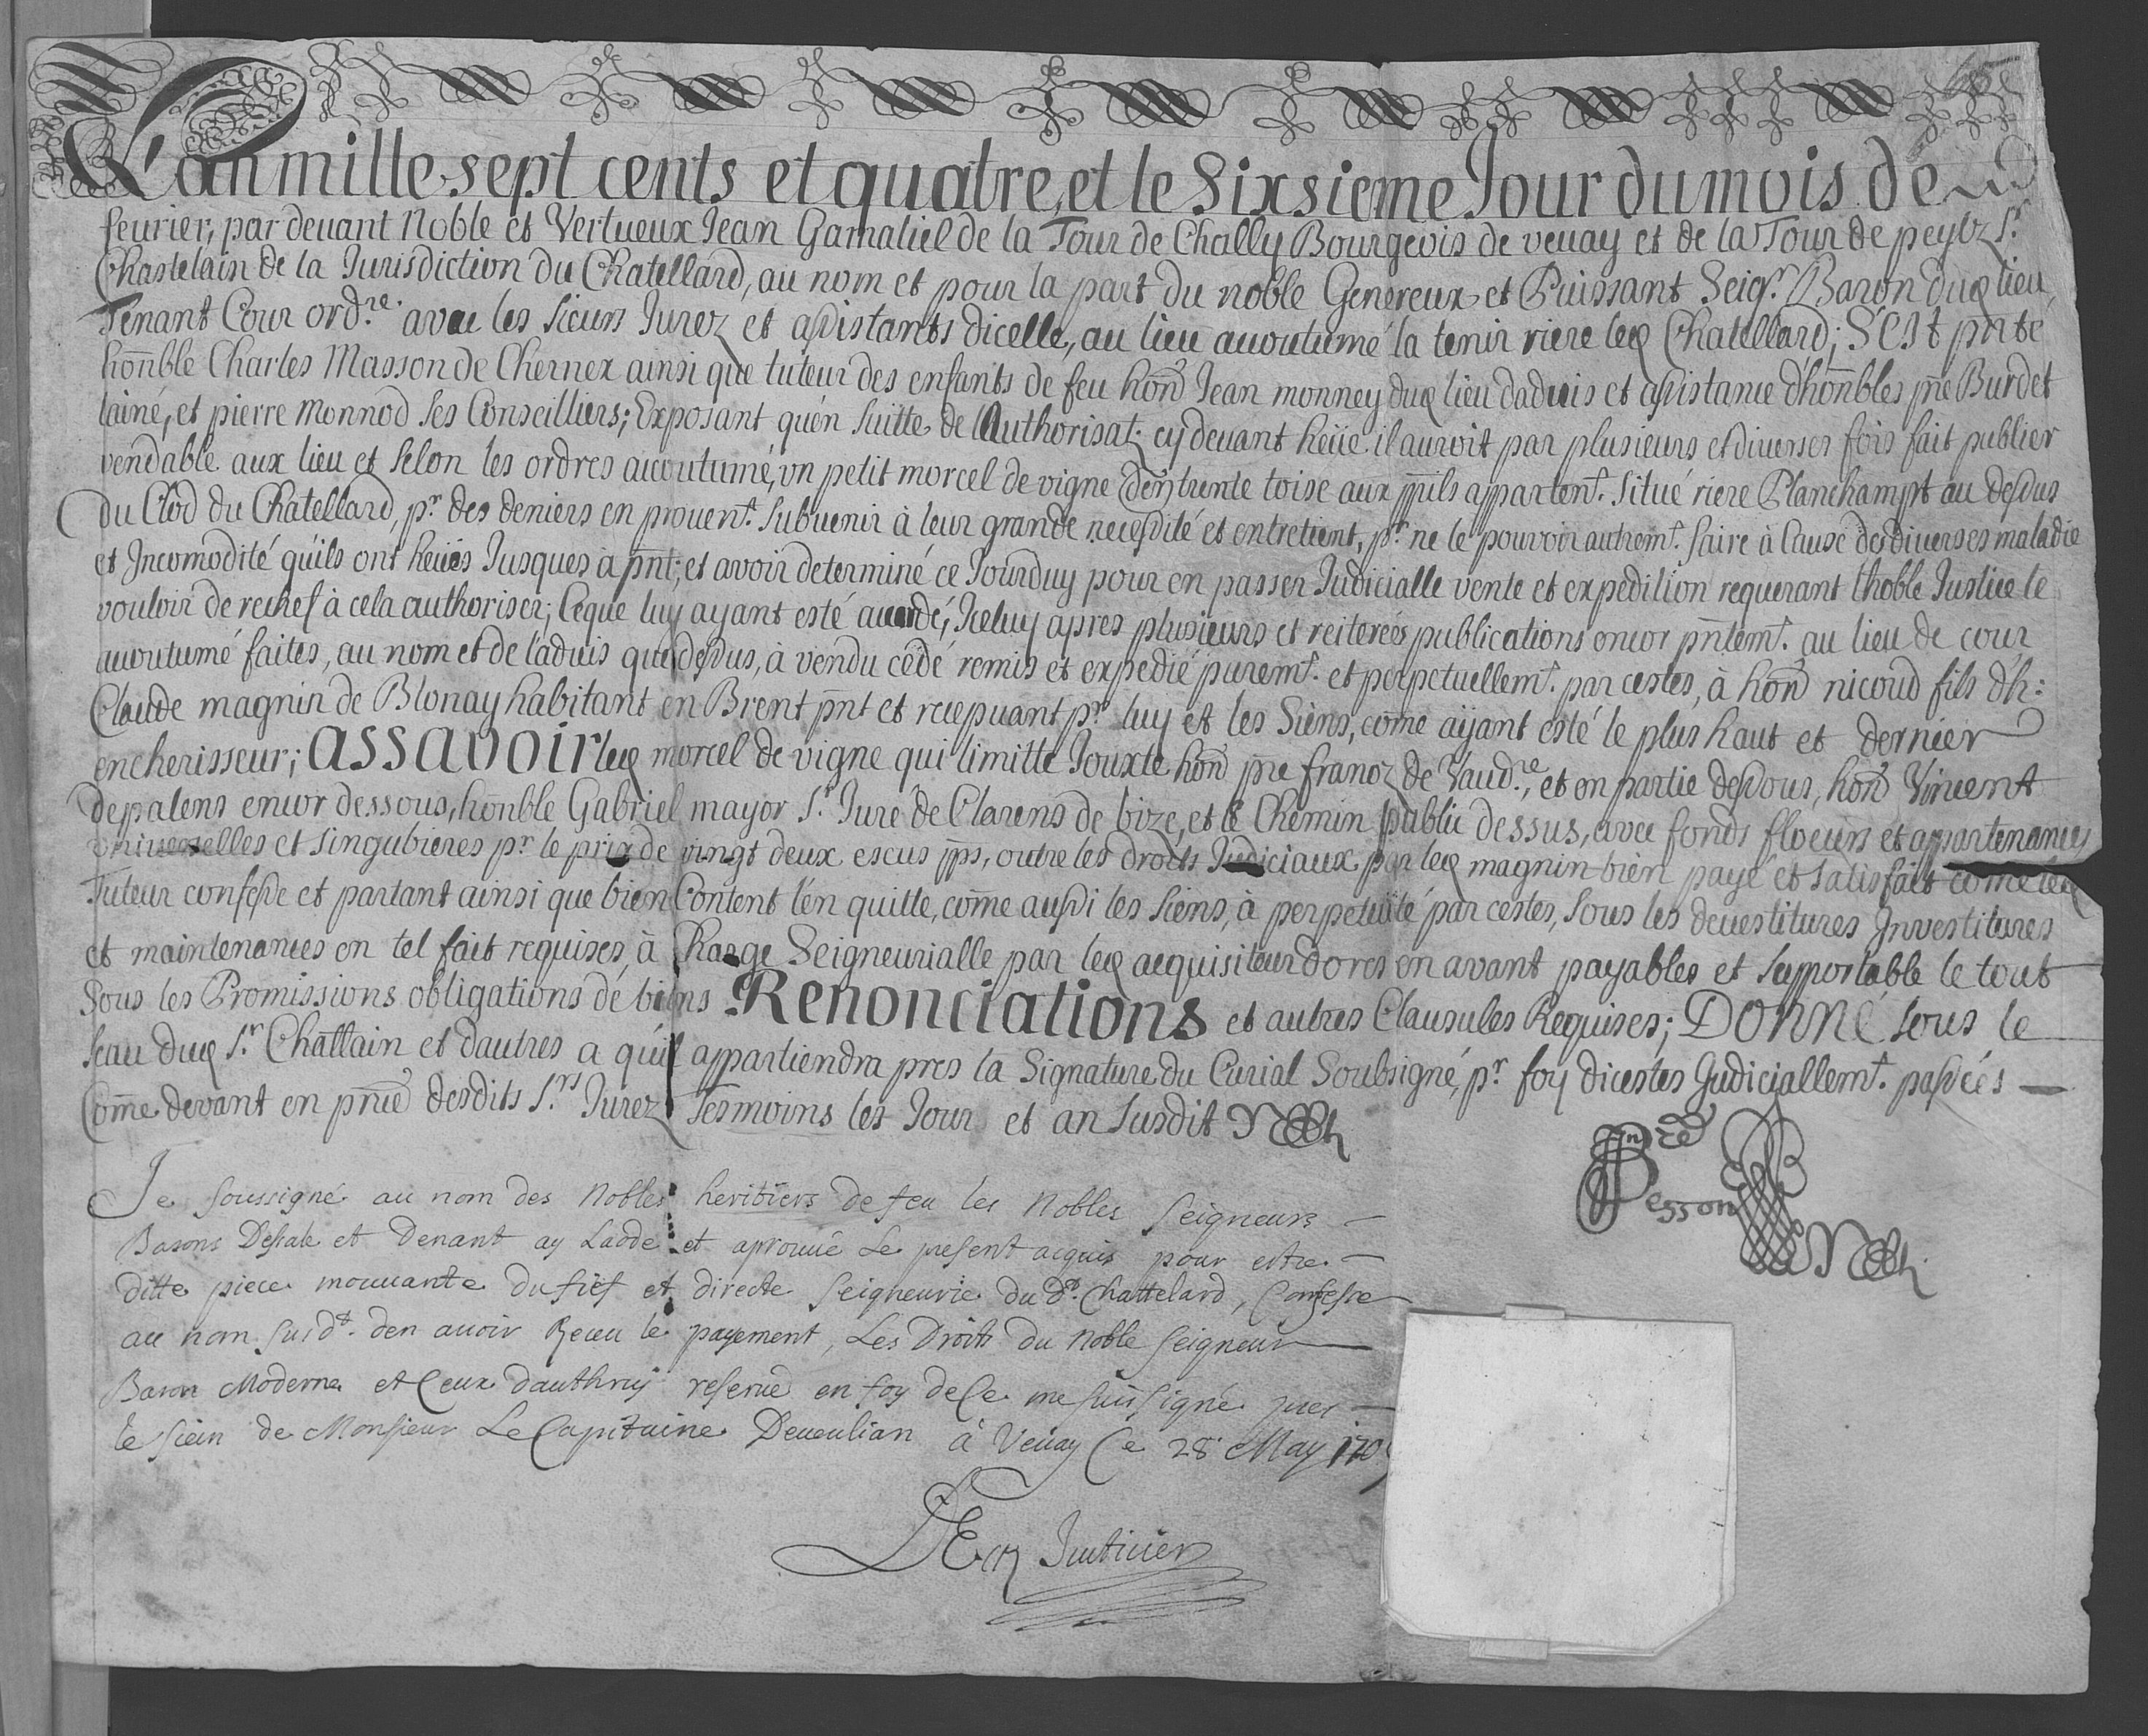 L'an mille sept cents et quatre, et le Sixsieme Jour du mois de
feurier, par deuant Noble et Vertueux Jean Gamaliel de la Tour de Chally Bourgeois de veuay et de la Tour de peylz Sr.
Chastelain de la Jurisdiction du Chatellard, au nom et pour la part du noble Genereux et Puissant Seigr. Baron duq lieu,
Tenant Cour ordre. avec les sieurs Jurez et assistants dicelle, au lieu accoutumé la tenir riere leq Chatellard; S'est pnte
honble Charles Masson de Chernex ainsi que tuteur des enfants de feu hond Jean monney duq lieu daduis et assistance d'honbles pre Burdet
lainé, et pierre monnod ses Conseilliers; Exposant qu'en suitte de l'Authorisat. cy deuant heüe il auroit par plusieurs et diverses fois fait publier
vendable aux lieu et selon les ordres accoutumé, un petit morcel de vigne d'en trente toise aux ppils appartent. situé riere Planchampt au dessus
du Clod du Chatellard, pr. des deniers en prouent. subuenir à leur grande necessité et entretient, pr. ne le pouvoir autremt. faire à Cause des diuerses maladie
et Incomodité qu'ils ont heües Jusques a pnt; et avoir determiné ce Jourduy pour en passer Judicialle vente et expedition requerant lhoble Justice le
vouloir de rechef à cela authoriser; Ce que luy ayant esté accordé, Iceluy apres plusieurs et reiterées publications encor pntemt. au lieu de cour
accoutumé faites, au nom et de l'aduis que dessus, à vendu cédé remis et expedié puremt. et perpetuellemt. par cestes, à hond nicoud fils d'h:
Claude magnin de Blonay habitant en Brent pnt et recepuant pr. luy et les Siens, come aÿant esté le plus haut et dernier
encherisseur; assavoir leq morcel de vigne qui limitte Jouxte hond pre francz de Vaudre., et en partie dessous, hond Vincent
depalens encor dessous, honble Gabriel mayor Sr. Juré de Clarens de bize, et le Chemin public dessus, avec fonds floeurs et appartenances
universelles et singulieres pr. le prix de vingt deux escus pps, outre les droits Judiciaux par leq magnin bien payé et satisfait come leq
Tuteur confesse et partant ainsi que bien Content l'en quitte, come aussi les siens, à perpetuité par cestes, sous les deuestitures Inuestitures
et maintenances en tel fait requises, à Charge Seigneurialle par leq acquisiteur dores en avant payables et supportable le tout
Sous les Promissions obligations de biens Renonciations et autres Clausules Requises; Donné sous le
seau duq Sr. Chatlain et dautres a qu'il appartiendra pres la Signature du Curial Soubsigné, pr. foy dicestes Judiciallemt. passées
Come devant en pnce desdits Srs. Jurez Tesmoins les Jour et an Susdit
Besson
Je soussigné au nom des Nobles heritiers de feu les Nobles Seigneurs
Barons Dessale et Denant ay Laodé et aprouué Le present acquis pour estre
ditte piece mouuante du fief et directe Seigneurie du dt. Chattelard, Confesse
au nom susdt. den auoir Receu le payement, Les Droits du Noble Seigneur
Baron Moderne et Ceux dauthruy reserué en foy de Ce me suis signé pres
le sein de Monsieur Le Capitaine Deueulian à Veuay Ce 28 May 170